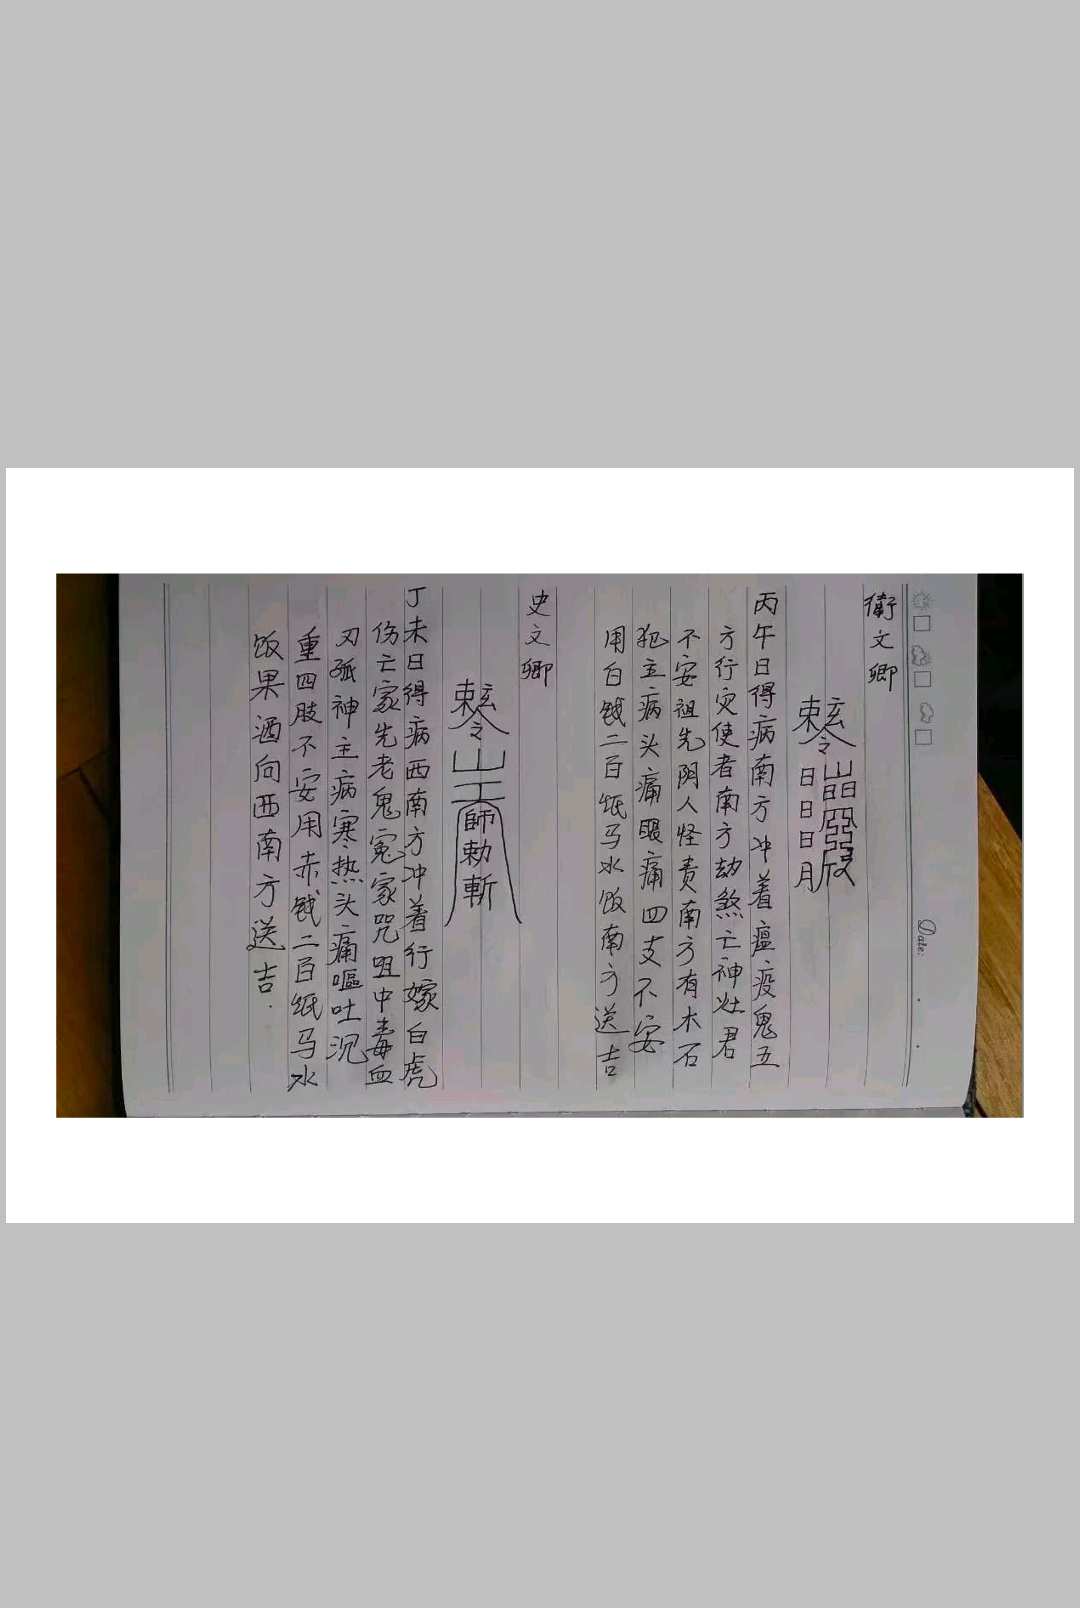 Date:
衛文卿
敕令
日日日月
丙午日得病南方冲着瘟疫鬼五
方行灾使者南方劫煞亡神灶君
不安祖先阴人怪责南方有木石
犯主病头痛眼痛四支不安
用白钱二百纸马水饭南方送吉
史文卿
敕令
師勅斬
丁未日得病西南方冲着行嫁白虎
伤亡家先老鬼冤家咒咀中毒血
刃孤神主病寒热头痛嘔吐沉
重四肢不安用赤钱二百纸马水
饭果酒向西南方送吉.